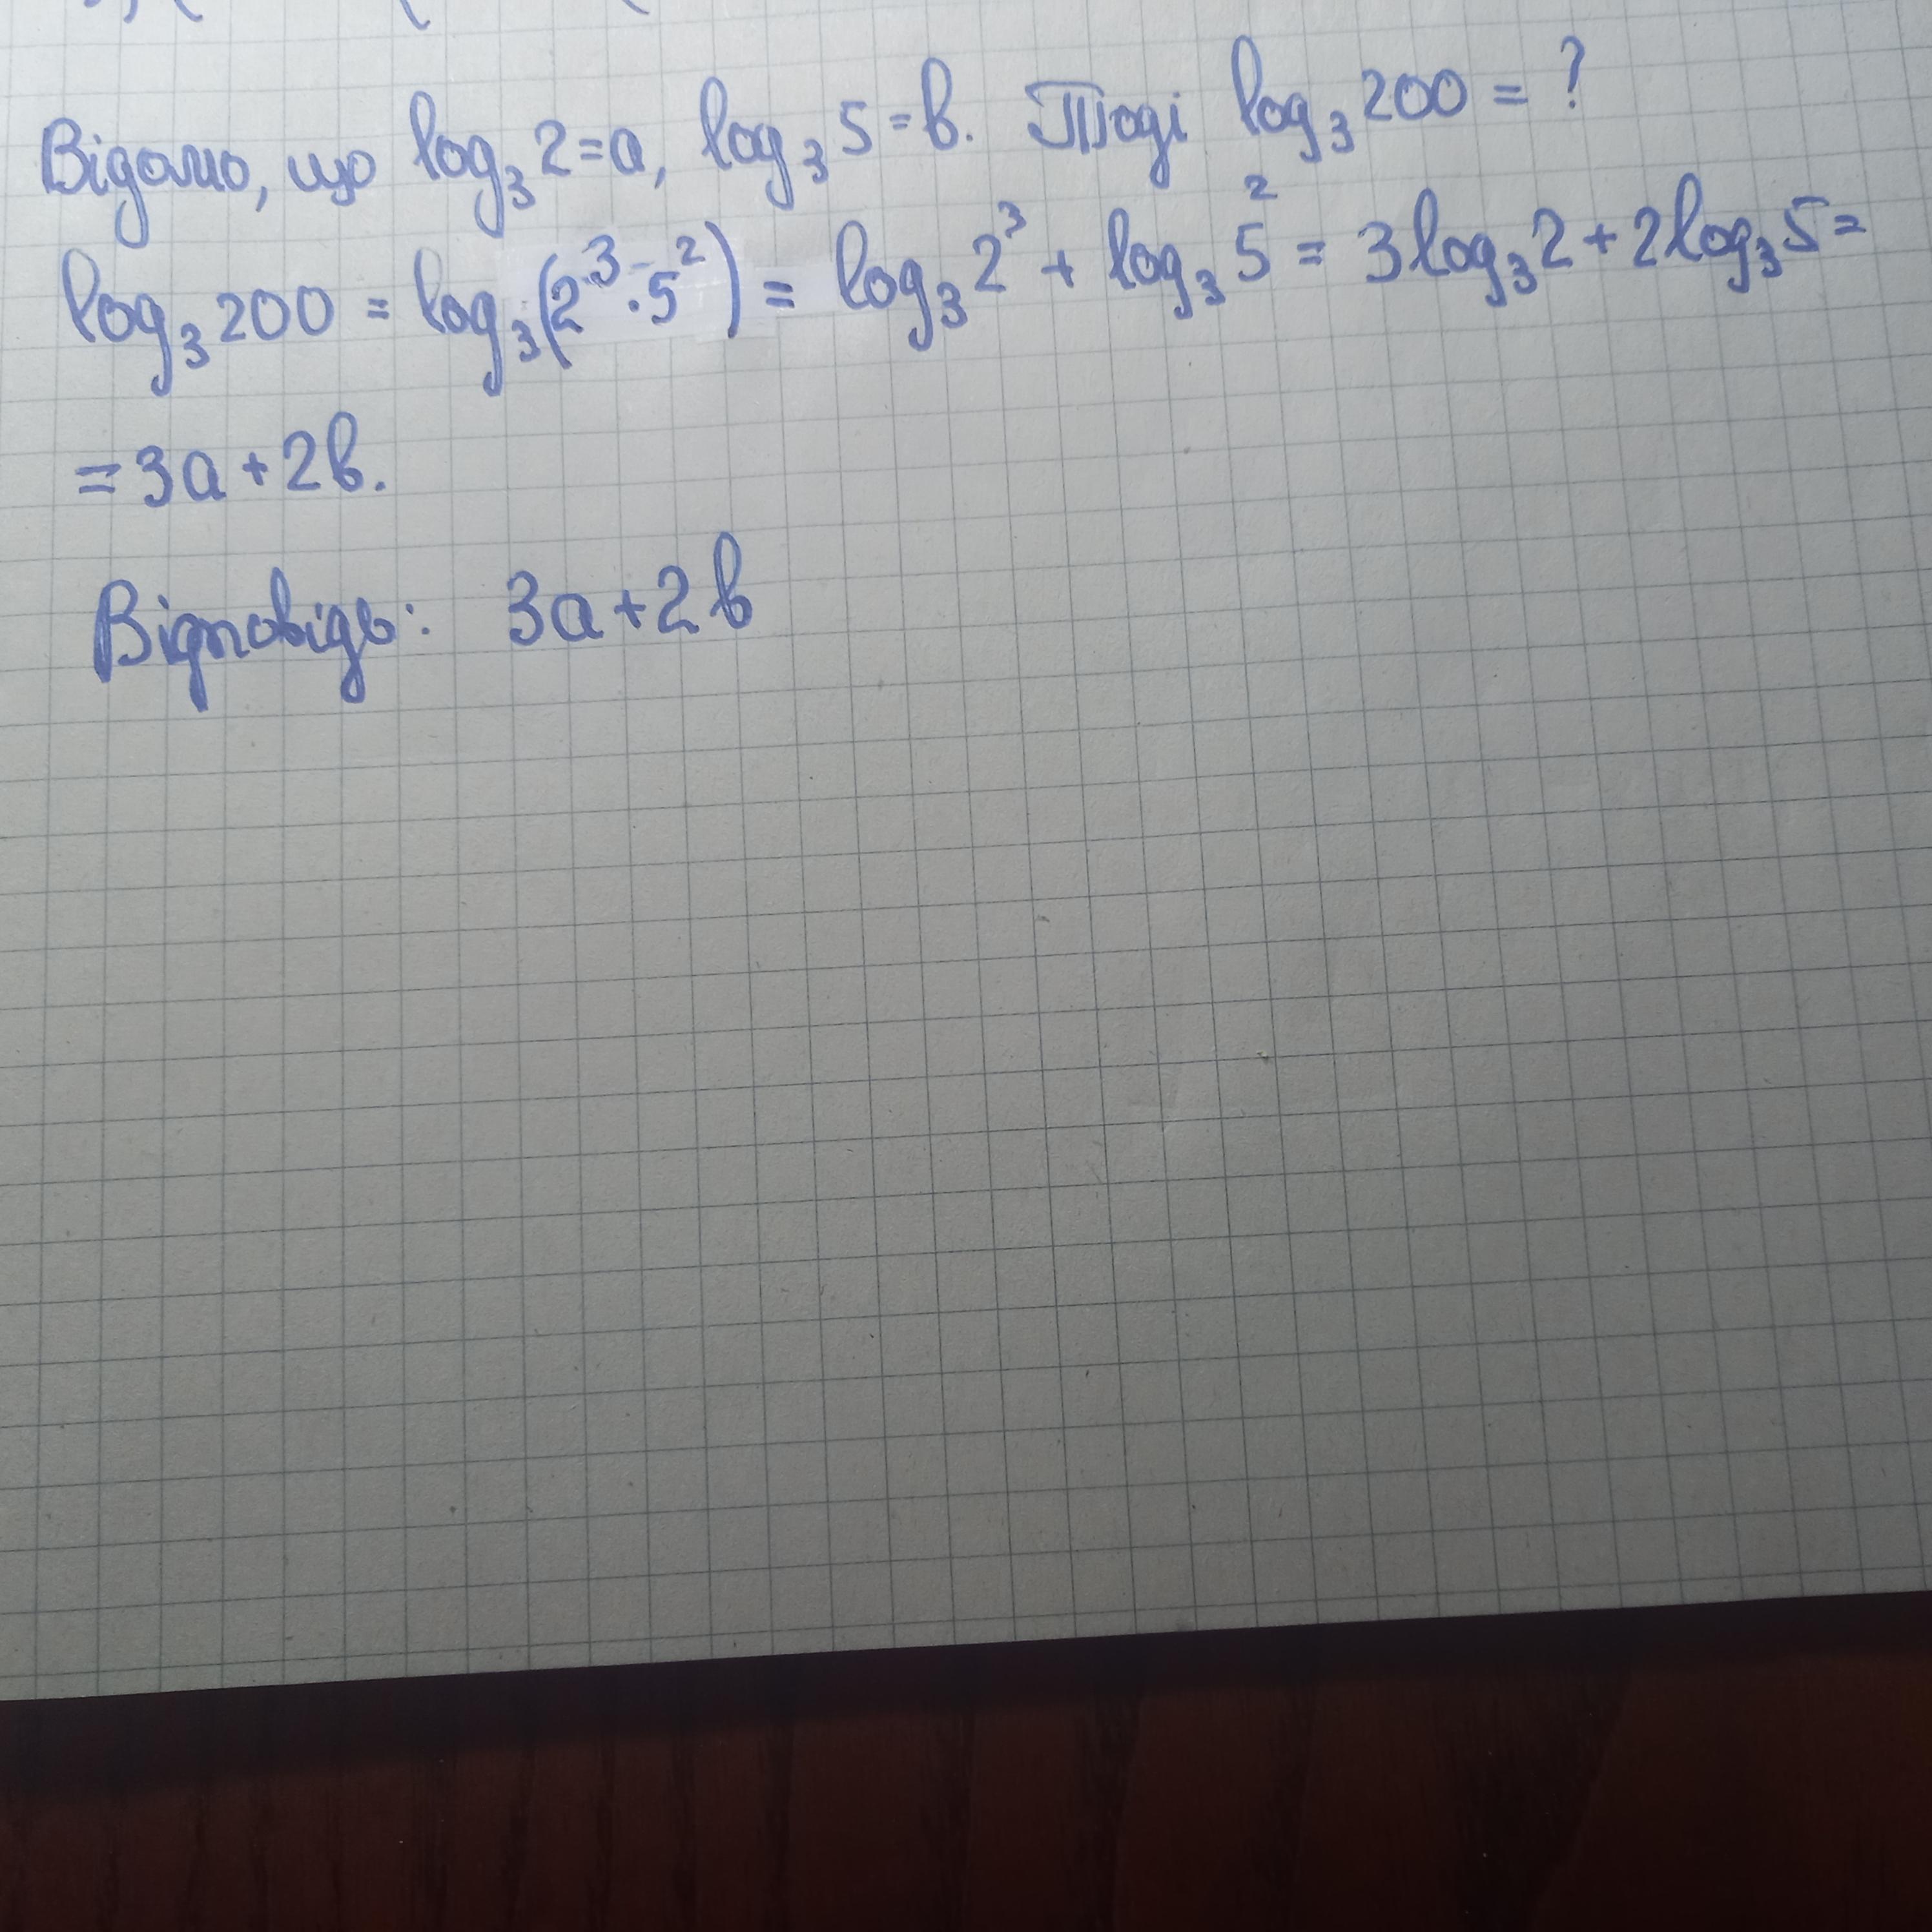 Відомо, що log₃2=a, log₃5=в. Тоді log₃200=?
log₃200 = log₃(2³·5²) = log₃2³ + log₃5² = 3log₃2+2log₃5=
=3a+2в.
Відповідь: 3a+2в